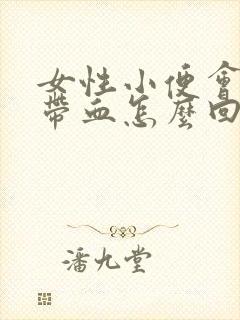 女性小便會
帶血怎麼回
潘九堂